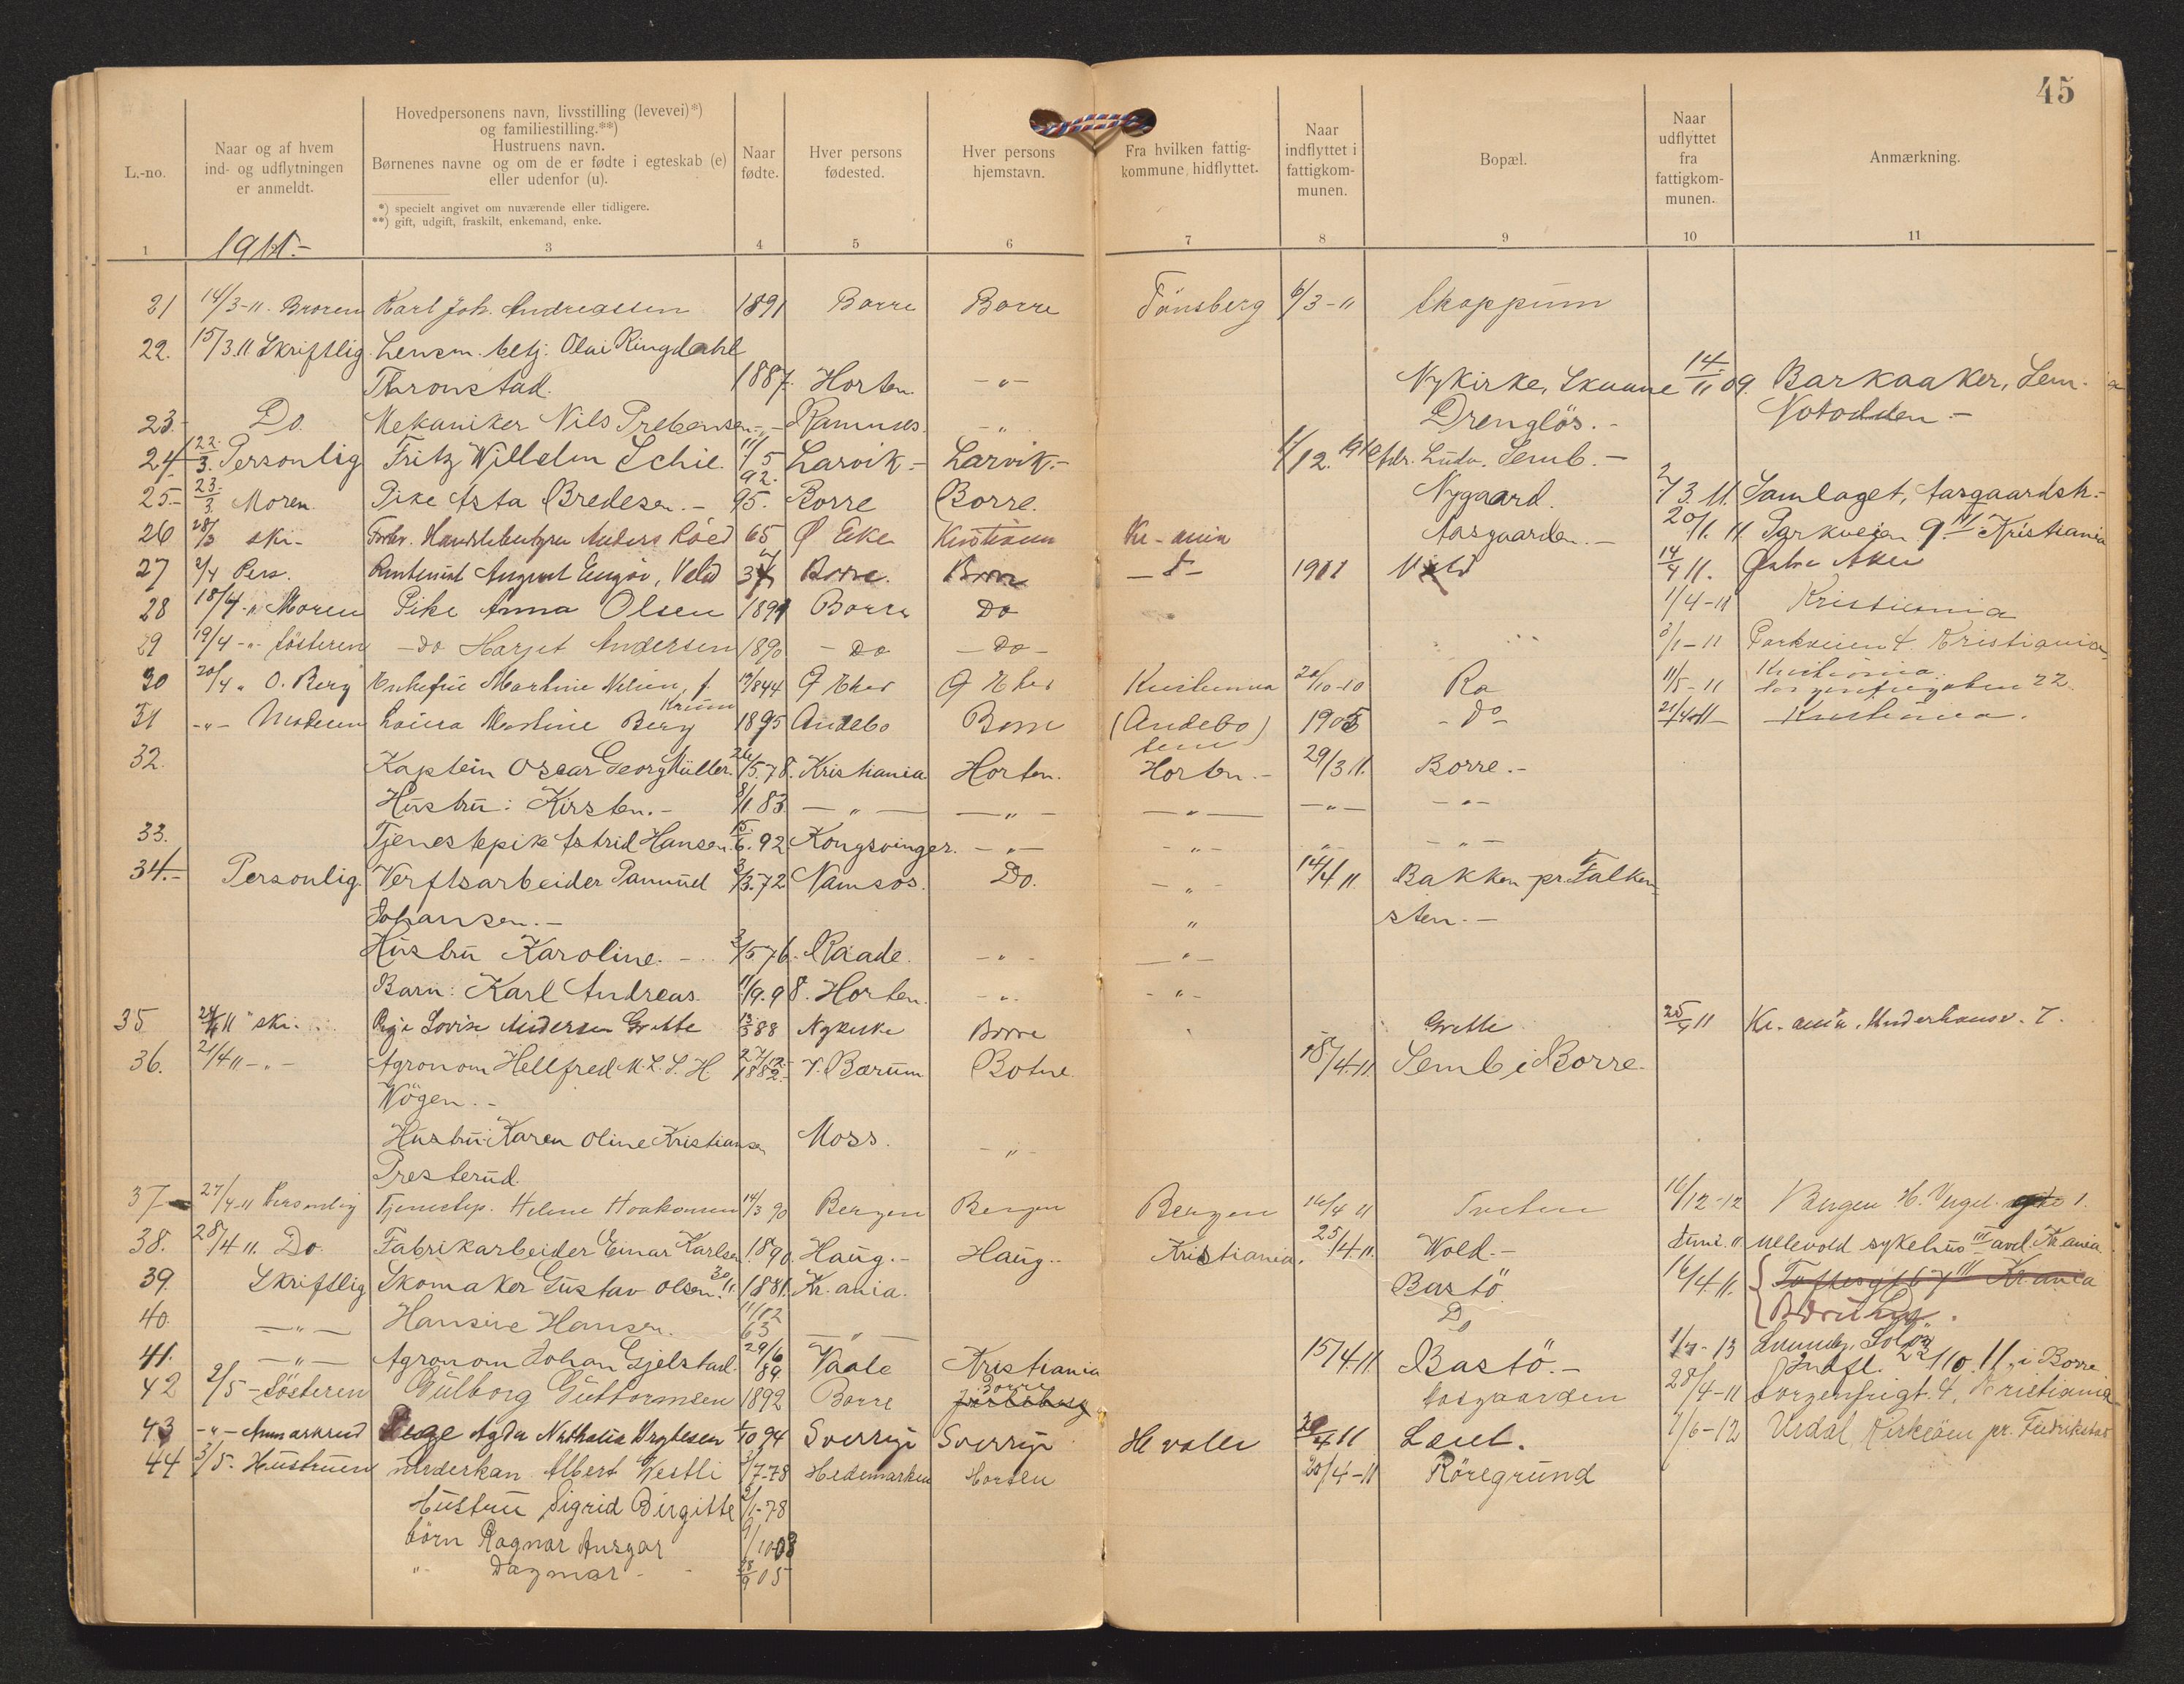 45
L.-no.
Naar og af hvem
ind- og udflytningen
er anmeldt.
Hovedpersonens navn, livsstilling (levevei)*)
og familiestilling.**)
Hustruens navn.
Børnenes navne og om de er fødte i egteskab (e)
eller udenfor (u).
*) specielt angivet om nuværende eller tidligere.
**) gift, ugift, fraskilt, enkemand, enke.
Naar
fødte.
Hver persons
fødested.
Hver persons
hjemstavn.
Fra hvilken fattig-
kommune hidflyttet.
Naar
indflyttet i
fattigkom-
munen.
Bopæl.
Naar
udflyttet
fra
fattigkom-
munen.
Anmærkning.
1 3 4 5 6 7 8 9 10 11
1911.-
21 14/3-11. Broren Karl Joh. Andreassen 1891 Borre Borre Tönsberg 6/3-11 Skoppum
22. 15/3.11 Skriftlig Lensm. betj. Olai Ringdahl
Thronstad. 1887. Horten -"- Nykirke, Skaane 14/11 09. Barkaaker, Sem.
23.- Do. Mekaniker Nils Prebensen -"- Ramnes. -"- Drenglös.- Notodden-
24 22/3. Personlig Fritz Wilhelm Schie. 11/5 92. Larvik.- Larvik.- 1/12. 1910 adr. Ludv. Semb.-
25- 23/3 Moren. Pike Asta Bredesen.- 95. Borre Borre. Nygaard. 2/3.11. Samlaget, Aasgaardstr.-
26 28/3 skr- Forhv. Anders Röed 65 Ø Eker Kristiania Kr-ania Aasgaarden.- 20/1.11 Parkveien 9 IV Kristiania
27 2/4 Pers. August Engö, Vold Borre. Borre 1901 Vold 14/4 11. Østre Aker
28 18/4 " Moren Pike Anna Olsen 1891 Borre Do 1/4-11 Kristiania
29 19/4 -"- Søsteren -Do Harjet Andersen 1890 -Do -Do- 3/1-11 Parkveien 4. Kristiania
30 20/4 " O. Berg Enkefru Martine Nilsen, f. 1844 Ø Eker Ø Eker Kristiania 20/10-10 Ra 11/5-11 Kristiania.
22.
31 -"- Moderen Laura Martine Berg 1895 Andebo Borre (Andebo) 1905 -Do- Kristiania.
Sem
32. Kaptein Oscar Georg Müller. 26/5.78. Kristiania Horten. Horten.- 29/3 11. Borre.-
Hustru: Kirsten.- 8/1 83 -"- -"- -"- -"- -"-
33. Tjenestepike Astrid Hansen. 15/6.92. Kongsvinger. -"- -"- -"- -"-
34.- Personlig. Verftsarbeider Pamud 3/3.72 Namsos. Do. -"- 14/4.11. Bakken pr. Falken-
Johansen.- " sten.-
Hustru Karoline.- 3/5.76. Raade. -"- -"-
Barn: Karl Andreas. 11/9.98. Horten. -"- -"-
35 11 skr. Pige Lovise Andersen Grette 13/3 88 Nykirke Borre Grette 25/4 11 Kr.ania, Underhausv. 7.
36. 21/4 11 -"- Agronom Hellfred M. L. S. H 27/12 1882.- V. Bærum Botne. 18/4.11. Semb i Borre.
Wögen.-
Hustru: Karen Oline Kristiansen Moss. -"-
Presterud.
37- 27/4-11 Personlig Tjenestep. Helene Haakonsen 14/3 90 Bergen Bergen Bergen 16/4 11 Tveten 16/12-12 Bergen H. Vergel. 1.
38. 28/4 11. Do. Fabrikarbeider Einar Karlsen. 1890. Haug.- Haug.. Kristiania. 25/4.11. Wold.- Juni.11 Ullevold sykehus III avd. Kr.ania
39. Skriftlig Skomaker Gustav Olsen. 30/11 1881. Kr. ania. Bastö. 16/4.11. Toftesgt 67 III Kr.ania
40. -"- Hansine Hansen. 11/12 63 -"- Do
41. -"- Agronom Johan Gjelstad. 29/6 89. Vaale Kristiania 15/4.11. Bastö.- 13 Indfl. 22/10.11. i Borre
42 2/5-Søsteren Gülborg Guttormsen 1892 Borre Borre Aasgaarden 28/4-11 Sorgenfrigt. 4, Kristiania
43 -"- Agda Nathalia 94 Sverrige Sverrige Hvaler 11 1/6-12 Urdal, Kirköen pr. Fredrikstad
44 3/5. Hustruen underkan. Albert Westli 1/7-78 Hedemarken Horten 20/4-11 Röregrund
Hustru Sigrid Birgitte 2/1-78
börn Ragnar Ansgar 9/10-03
"- Dagmar- 28/9 05